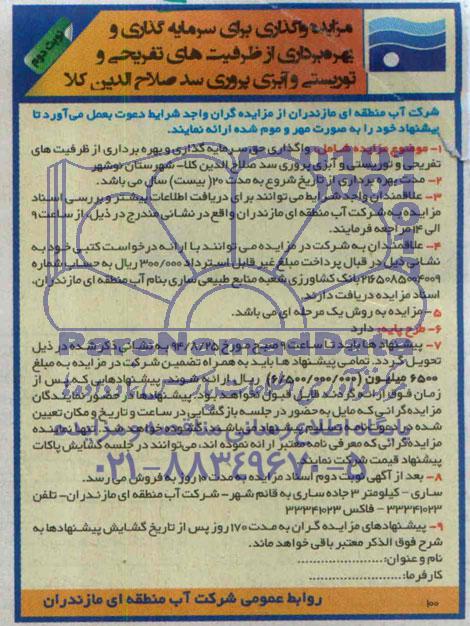 مزایده واگذاری برای سرمایه گذاری و
بهره برداری از ظرفیت های تفریحی و
توریستی و آبزی پروری سد صلاح الدین کلا
نوبت دوم
شرکت آب منطقه ای مازندران از مزایده گران واجد شرایط دعوت بعمل می آورد تا
پیشنهاد خود را به صورت مهر و موم شده ارائه نمایند.
۱- موضوع مزایده شامل: واگذاری حق سرمایه گذاری و بهره برداری از ظرفیت های
تفریحی و توریستی و آبزی پروری سد صلاح الدین کلا – شهرستان نوشهر
۲- مدت بهره برداری از تاریخ شروع به مدت ۲۰ (بیست) سال می باشد.
۳- علاقمندان واجد شرایط می توانند برای دریافت اطلاعات بیشتر و بررسی اسناد
مزایده به شرکت آب منطقه ای مازندران واقع در نشانی مندرج در ذیل، از ساعت ۹
الی ۱۴ مراجعه فرمایند.
۴- علاقمندان به شرکت در مزایده می توانند با ارائه درخواست کتبی خود به
نشانی ذیل در قبال پرداخت مبلغ غیر قابل استرداد ۳۰۰/۰۰۰ ریال به حساب شماره
۲۱۶۵۰۸۵۰۰۴۰۰۹ بانک کشاورزی شعبه منابع طبیعی ساری بنام آب منطقه ای مازندران،
اسناد مزایده دریافت دارند.
۵- مزایده به روش یک مرحله ای می باشد.
۶- طرح پایه: دارد
۷- پیشنهادها باید تا ساعت ۹ صبح مورخ ۹۴/۸/۲۵ به نشانی ذکر شده در ذیل
تحویل گردد. تمامی پیشنهادها باید به همراه تضمین شرکت در مزایده به مبلغ
۶۵۰۰ میلیون (۶/۵۰۰/۰۰۰/۰۰۰) ریال ارائه شوند. پیشنهادهایی که پس از
زمان فوق ارائه گردند قابل قبول نخواهد بود. پیشنهادها در حضور نمایندگان
مزایده گرانی که مایل به حضور در جلسه بازگشایی در ساعت و تاریخ و مکان تعیین
شده در دعوتنامه تسلیم پیشنهاد می باشند گشوده خواهد شد. تنها نماینده
مزایده گرانی که معرفی نامه معتبر ارائه نموده اند، می توانند در جلسه گشایش پاکات
پیشنهاد قیمت شرکت نمایند.
۸- بعد از آگهی نوبت دوم اسناد مزایده به مدت ۱۰ روز به فروش می رسد.
ساری – کیلومتر ۳ جاده ساری به قائم شهر – شرکت آب منطقه ای مازندران – تلفن
۳۳۳۴۱۰۲۳ – فاکس ۳۳۳۴۱۰۲۳
۹- پیشنهادهای مزایده گران به مدت ۱۷۰ روز پس از تاریخ گشایش پیشنهادها به
شرح فوق الذکر معتبر باقی خواهد ماند.
نام و عنوان:........................
کارفرما:........................
روابط عمومی شرکت آب منطقه ای مازندران
۱۰۰
ParsNamadData
۰۲۱-۸۸۳۴۹۶۷۰-۵